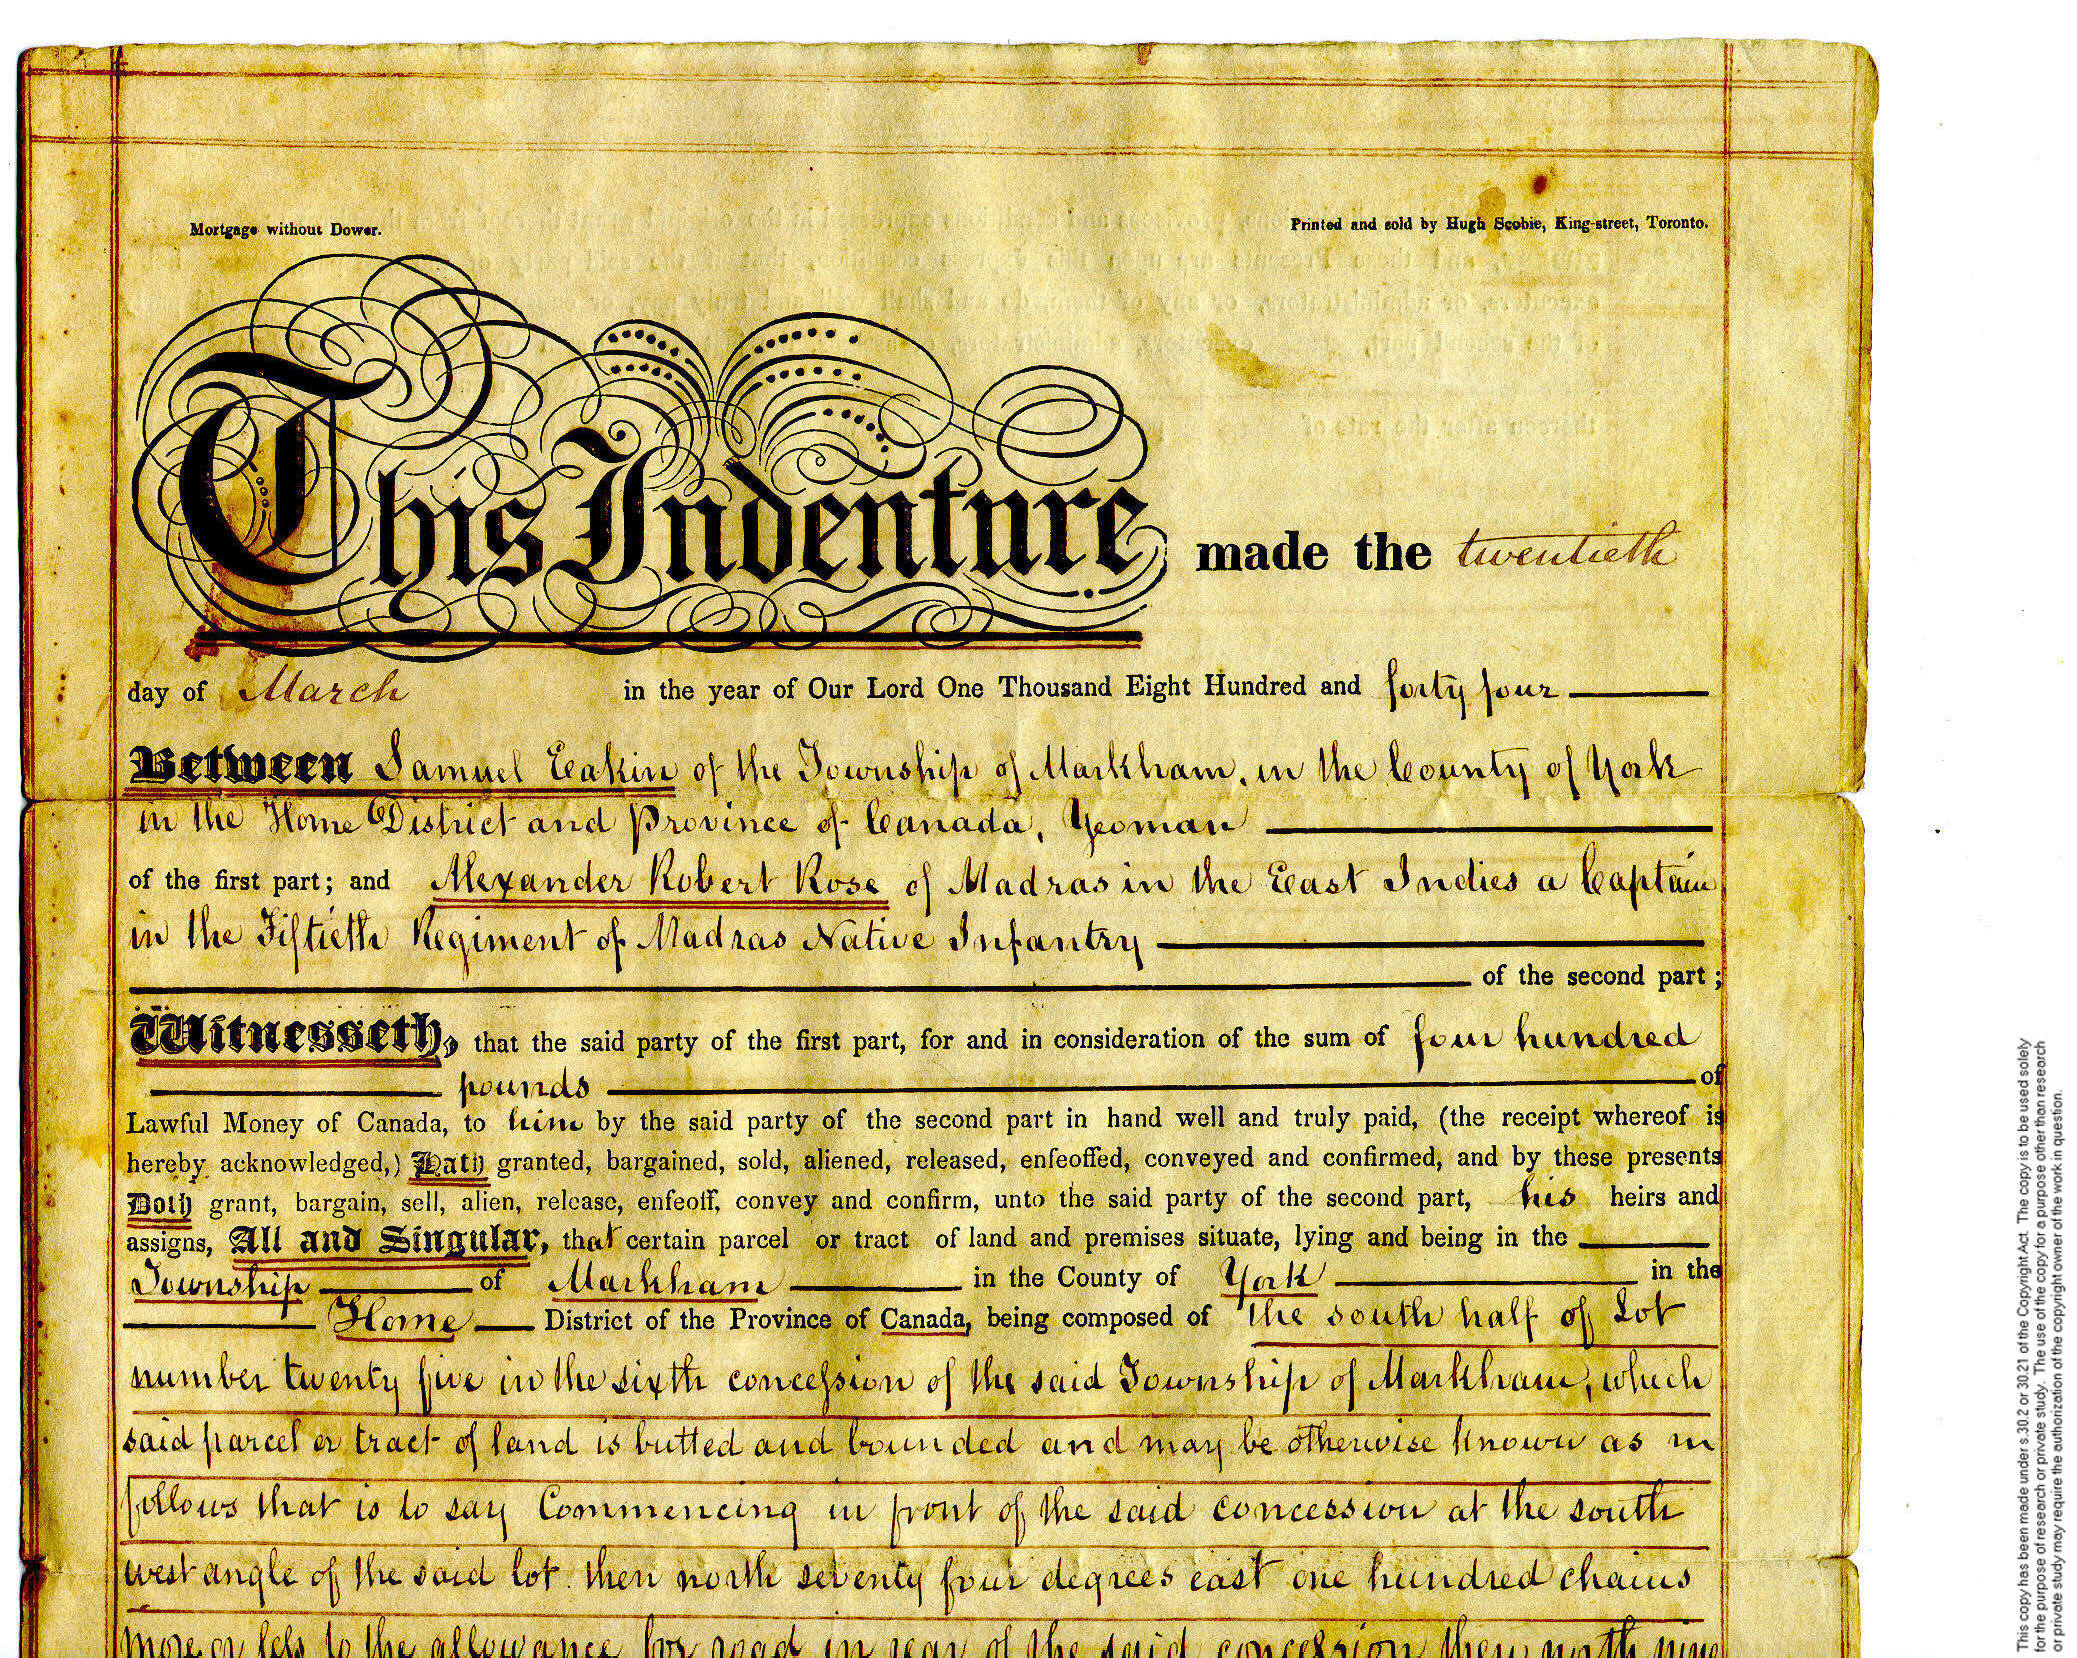 Mortgage without Dower.
Printed and sold by Hugh Scobie, King-street, Toronto.
This Indenture made the twentieth
day of March in the year of Our Lord One Thousand Eight Hundred and forty four
Between Samuel Eakin of the Township of Markham, in the County of York
in the Home District and Province of Canada, Yeoman
of the first part; and Alexander Robert Rose of Madras in the East Indies a Captain
in the Fiftieth Regiment of Madras Native Infantry
of the second part;
Witnesseth, that the said party of the first part, for and in consideration of the sum of four hundred
pounds of
Lawful Money of Canada, to him by the said party of the second part in hand well and truly paid, (the receipt whereof is
hereby acknowledged,) Hath granted, bargained, sold, aliened, released, enfeoffed, conveyed and confirmed, and by these presents
Doth grant, bargain, sell, alien, release, enfeoff, convey and confirm, unto the said party of the second part, his heirs and
assigns, All and Singular, that certain parcel or tract of land and premises situate, lying and being in the
Township of Markham in the County of York in the
Home District of the Province of Canada, being composed of the south half of Lot
number twenty five in the sixth concession of the said Township of Markham, which
said parcel or tract of land is butted and bounded and may be otherwise known as
follows that is to say Commencing in front of the said concession at the south
west angle of the said lot. then north seventy four degrees east one hundred chains
more or less to the allowance for road in rear of the said concession then north nine
This copy has been made under s.30.2 or 30.21 of the Copyright Act. The copy is to be used solely
for the purpose of research or private study. The use of the copy for a purpose other than research
or private study may require the authorization of the copyright owner of the work in question.